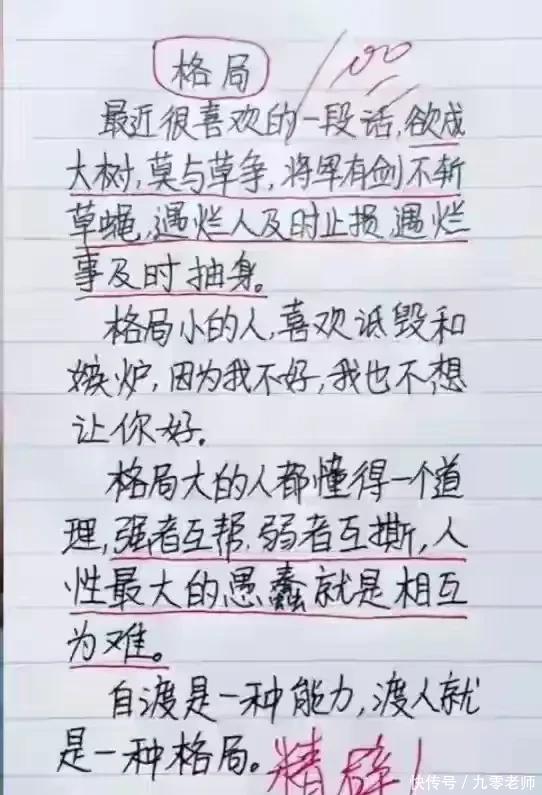 格局
100
最近很喜欢的一段话,欲成
大树,莫与草争,将军有剑不斩
草蝇,遇烂人及时止损,遇烂
事及时抽身。
格局小的人,喜欢诋毁和
嫉妒,因为我不好,我也不想
让你好。
格局大的人都懂得一个道
理,强者互帮,弱者互撕,人
性最大的愚蠢就是相互
为难。
自渡是一种能力,渡人就
是一种格局。
精辟!
快传号/九零老师